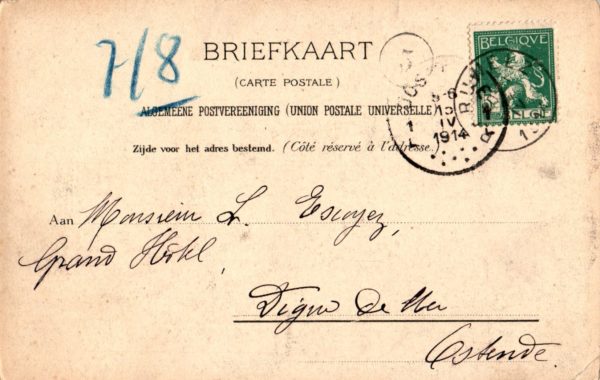 7/8
BRIEFKAART
(CARTE POSTALE)
ALGEMEENE POSTVEREENIGING (UNION POSTALE UNIVERSELLE)
Zijde voor het adres bestemd. (Côté réservé à l'adresse.)
BELGIQUE
IV
1914
Aan Monsieur L. Escoyez,
Grand Hôtel,
Digue de Mer
Ostende.